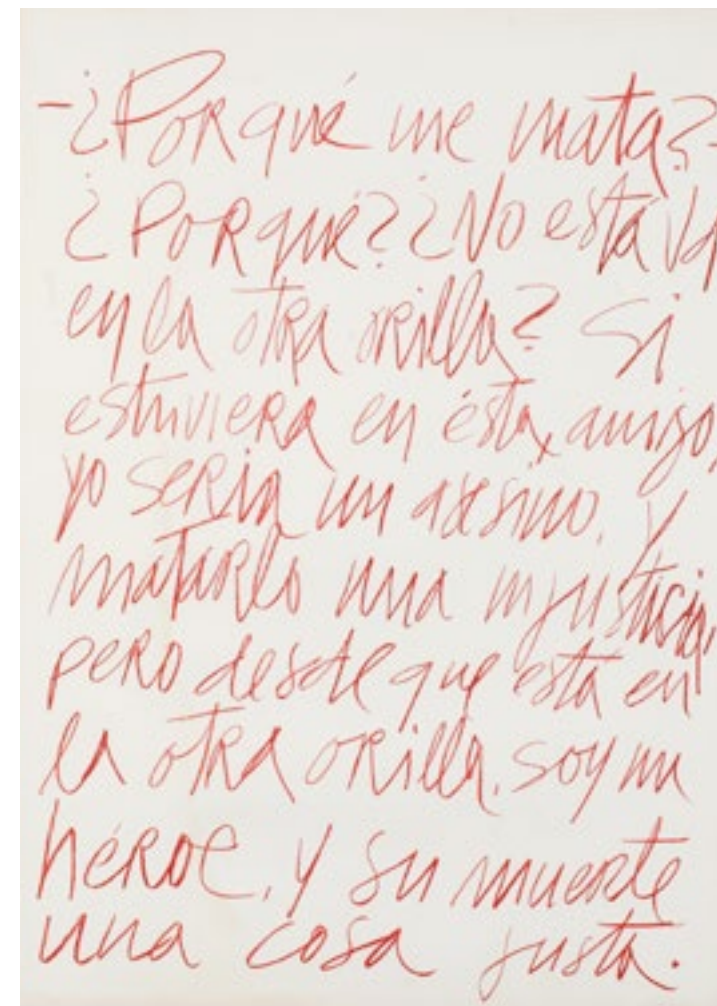 -¿PoRqué me mata?-
¿PoRqué? ¿No está Vd
en la otRa oRilla? Si
estuvieRa en ésta, amigo,
yo seRia un asesino, y
mataRlo una injusticia,
peRo desde que está en
la otRa oRilla, soy un
héRoe, y su muerte
una cosa justa.